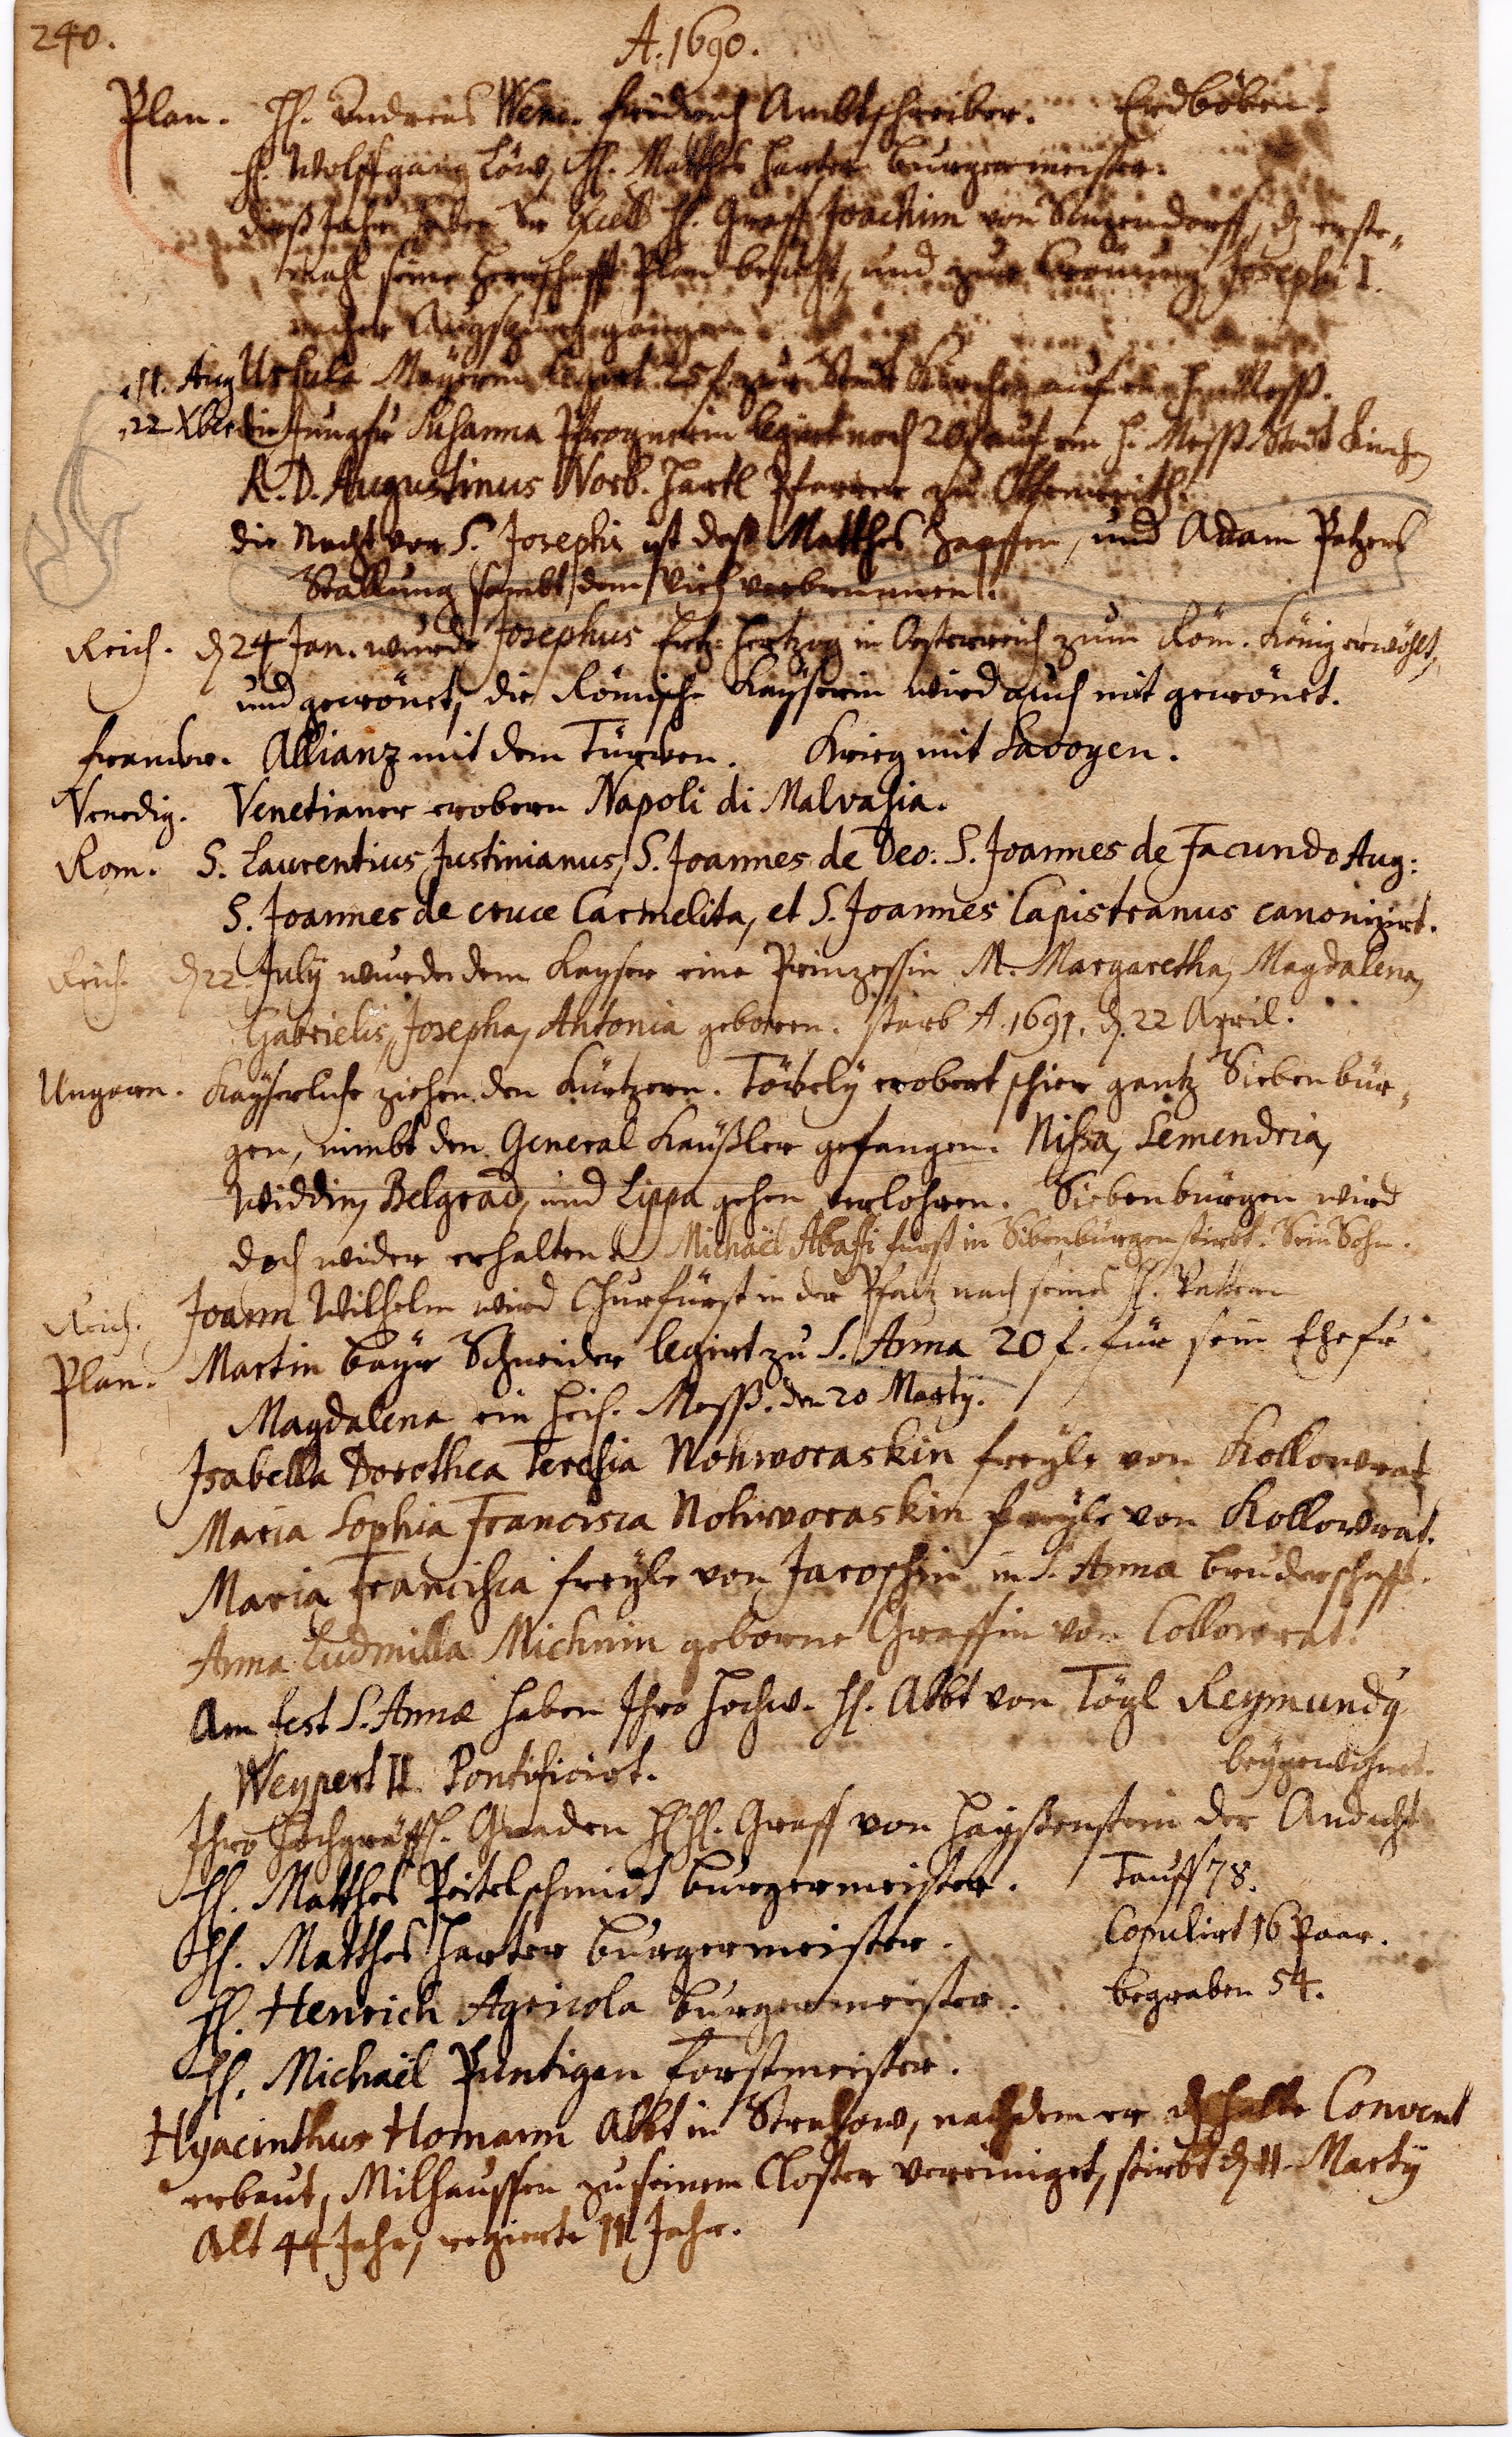 240.
A. 1690.
Plan. H. Andreas Wenc. Fridrich Ambtschreiber. Erdböben.
H. Wolffgang Löw, H. Matthes Harter burgermeister.
dieß Jahr haben Sr Excell H. Graff Joachim von Sinzendorff, dz erste
mahl seine Herrschafft Plan besucht, und zur Krönung Josephi I.
nacher Augspurg gangen.
11. Aug Ursula Mayerin legirt 25 f. zur Stadt Kirchen auf ein heil. Mess.
22 Xber die Jungfr Susanna Pfrognerin legirt noch 20 f auf ein H. Mess Stadt Kirchen
R. D. Augustinus Norb. Hartl Pfarrer zu
die Nacht vor S. Josephi ist deß Matthes Zapffen, und Adam Petzers
Stallung sambt dem Vieh verbrunnen.
Reich. dz 24 Jan. wurde Josephus Ertz-Hertzog in Oesterreich zum Röm. König erwöhlt,
und gecrönet, die Römische Kayserin wird auch mit gecrönet.
Franckr. Allianz mit dem Türcken. Krieg mit Savoyen.
Venedig. Venetianer erobern Napoli di Malvasia.
Rom. S. Laurentius Justinianus, S. Joannes de Deo. S. Joannes de Facundo Aug:
S. Joannes de cruce Carmelita, et S. Joannes Capistranus canonizirt.
Reich. dz 22 July wurde dem Kayser eine Prinzessin M. Margaretha, Magdalena,
Gabrielis, Josepha, Antonia geboren. starb A. 1691. dz. 22 April.
Ungarn. Kayserliche ziehen den Kürtzern. Töckely erobert schier gantz Siebenbür-
gen, nimbt den General Haüßler gefangen. Nissa, Semendria,
Widdin, Belgrad, und Lippa gehen verlohren. Siebenbürgen wird
doch wider erhalten. Michaël Abaffi fürst in Sibenbürgen stirbt. Sein Sohn.
Reich. Joann Wilhelm wird Churfürst in der Pfaltz nach seines H. Vattern
Plan. Martin bayr Schneider legirt zu S. Anna 20 f. für sein Ehefr
Magdalena ein heil. Mess. den 20 Marty.
Isabella Dorothea Teresia Nohworaskin freyle von Kollowrat
Maria Sophia Francisca Nohworaskin freyle von Kollowrat.
Maria Francisca freyle von Jaroschin in S. Anna bruderschafft.
Anna Ludmilla Michnin geborne Graffin von Collowrat.
Am fest S. Annæ haben Ihro Hochw. H. Abbt von Tögl Reymundg
Weypert II. Pontificirt. beygewohnet.
Ihro Hochgräffl. Gnaden HH. Graff von Hayssenstein der Andacht
H. Matthes Peitelschmidt burgermeister. Tauff 78.
H. Matthes Harter burgermeister. Copulirt 16 Paar.
H. Henrich Agricola burgermeister. begraben 54.
H. Michaël Puntigan forstmeister.
Hyacinthus Homann Abbt in Strahow, nachdem er dz halbe Convent
erbaut, Milhaussen zu seinem Closter vereiniget, stirbt dz 11. Marty
Alt 44 Jahr, regierte 11 Jahr.